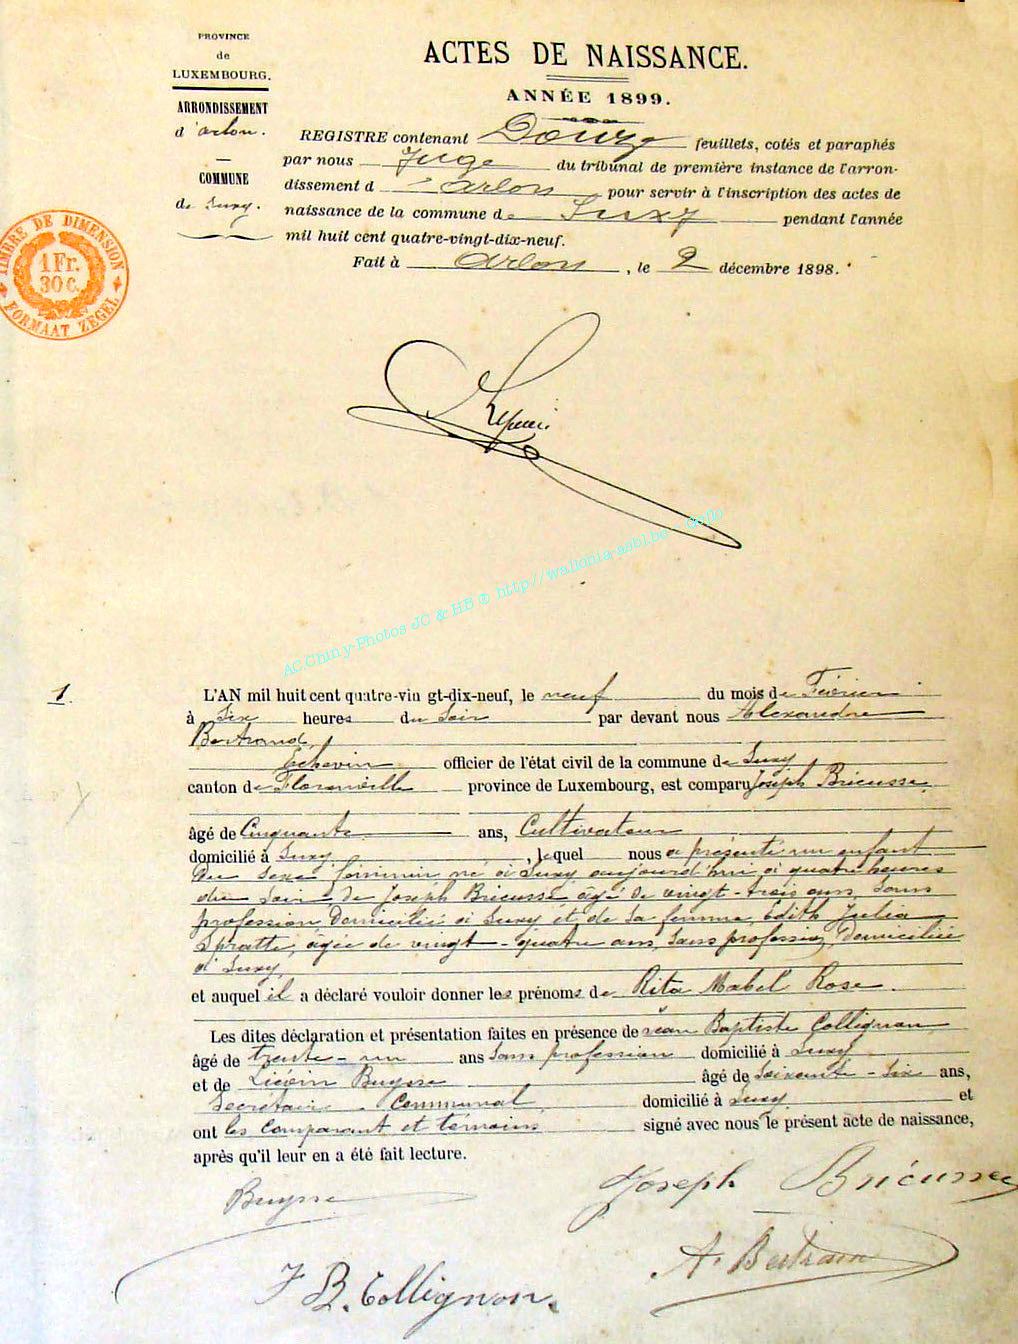 PROVINCE
de
LUXEMBOURG.
ARRONDISSEMENT
d'Arlon.
COMMUNE
de Suxy.
TIMBRE DE DIMENSION
1 Fr.
30 c.
FORMAAT ZEGEL
ACTES DE NAISSANCE.
ANNÉE 1899.
REGISTRE contenant Douze feuillets, cotés et paraphés
par nous Juge du tribunal de première instance de l'arron-
dissement d'Arlon pour servir à l'inscription des actes de
naissance de la commune de Suxy pendant l'année
mil huit cent quatre-vingt-dix-neuf.
Fait à Arlon, le 2 décembre 1898.
AC.Chiny-Photos JC & HB © http//wallonia-asbl.be
1.
L'AN mil huit cent quatre-vin gt-dix-neuf, le neuf du mois de Février
à Six heures du Soir par devant nous Alexandre
Bertrand,
Echevin officier de l'état civil de la commune de Suxy
canton de Florenville province de Luxembourg, est comparu Joseph Bricusse
âgé de Cinquante ans, Cultivateur
domicilié à Suxy, lequel nous a présenté un enfant
du sexe féminin né à Suxy aujourd'hui à quatre heures
du soir de Joseph Bricusse âgé de vingt-trois ans, sans
profession domicilié à Suxy et de sa femme, Edith Julia
Spratte, âgée de vingt-quatre ans, sans profession, domiciliée
à Suxy,
et auquel il a déclaré vouloir donner les prénoms de Rita Mabel Rose.
Les dites déclaration et présentation faites en présence de Jean Baptiste Collignon,
âgé de trente-un ans sans profession domicilié à Suxy
et de Buysse âgé de Soixante-Six ans,
Secrétaire Communal, domicilié à Suxy et
ont les Comparant et témoins signé avec nous le présent acte de naissance,
après qu'il leur en a été fait lecture.
Buysse
Joseph Bricusse
J B. Collignon.
A. Bertrand